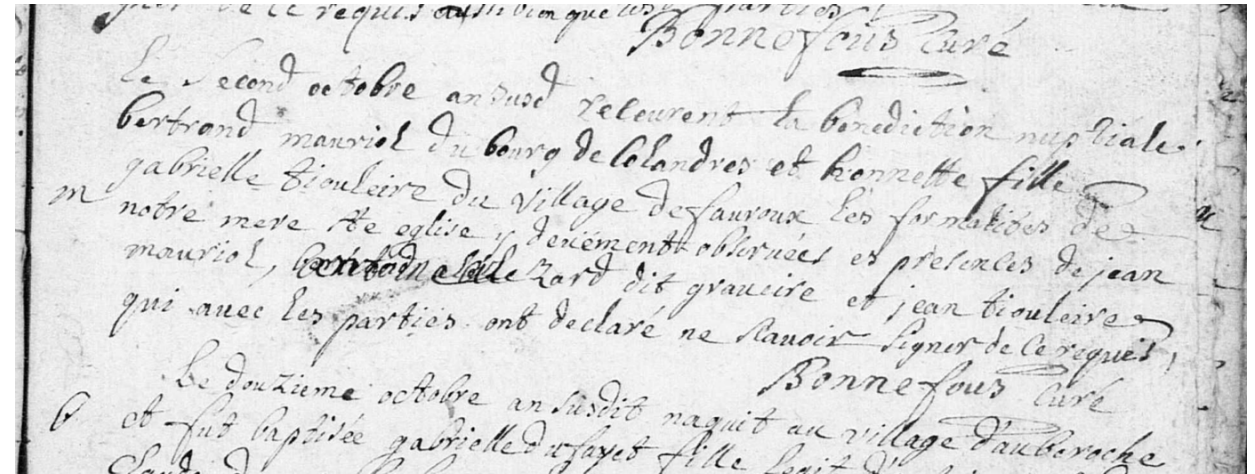 de ce requis aussi bien que les parties,
Bonnefous Curé
Le second octobre an susd receurent la benediction nuptiale
bertrand mauriol du bourg de Colandres et honnette fille
gabrielle tiouleire du village de fauroux les formalités de
m notre mere Ste eglise y deuëment obseruées es presences de jean
mauriol, zard dit graueire et jean tiouleire
qui auec les parties ont declaré ne scauoir signer de ce requis,
Bonnefous Curé
Le douzieme octobre an susdit naquit au village d'auberoche
b et fut baptisée gabrielle dufayet fille legit d'
Claude